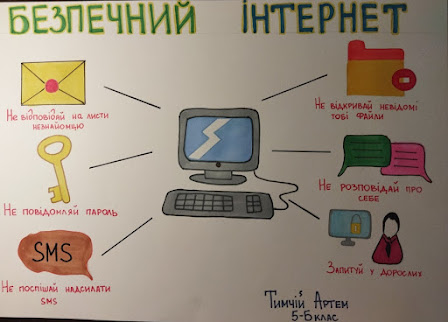 БЕЗПЕЧНИЙ ІНТЕРНЕТ
Не відповідай на листи
незнайомцю
Не відкривай невідомі
тобі файли
Не повідомляй пароль
Не розповідай про
себе
SMS
Не поспішай надсилати
SMS
Запитуй у дорослих
Тимчій Артем
5-Б клас